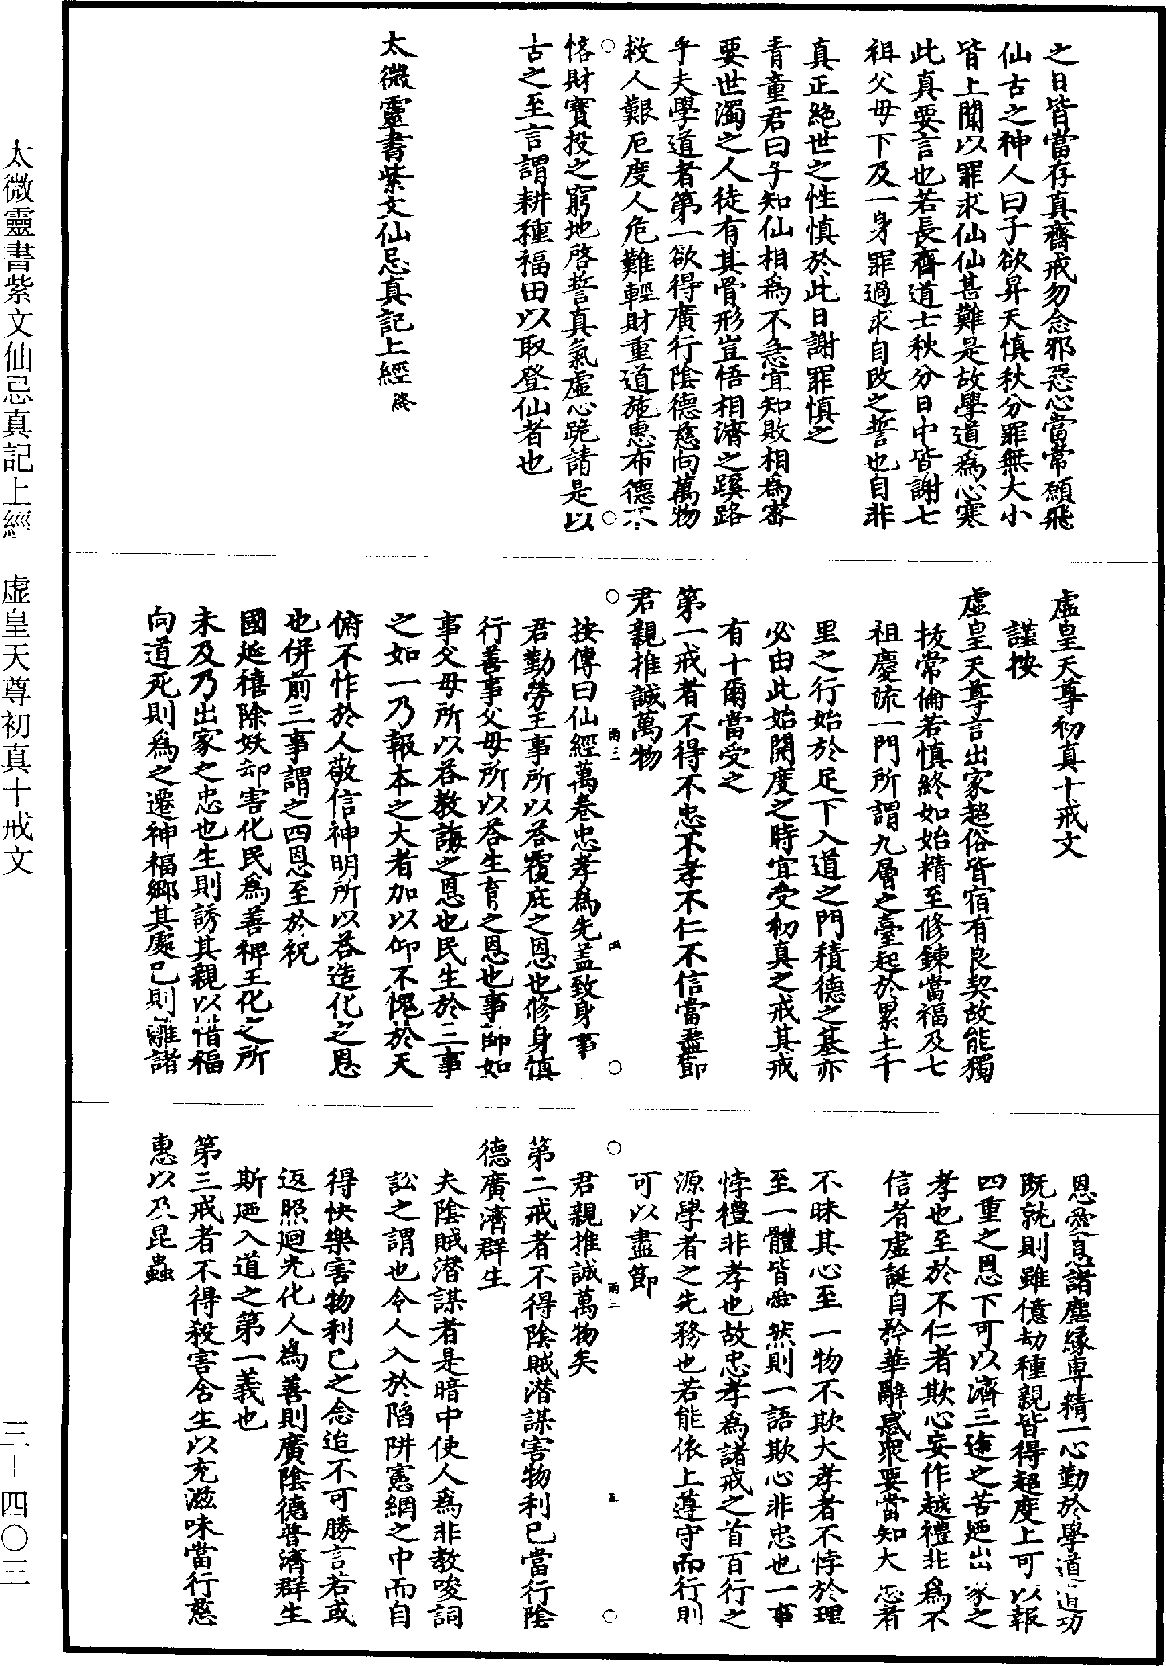 之日皆當存真齋戒勿念邪惡心當常願飛
仙古之神人曰子欲昇天慎秋分罪無大小
皆上聞以罪求仙仙甚難是故學道爲心寒
此真要言也若長齋道士秋分日中皆謝七
祖父母下及一身罪過求自改之誓也自非
真正絕世之性慎於此日謝罪慎之
青童君曰子知仙相爲不急宜知敗相爲審
要世濁之人徒有其骨形豈悟相濟之蹊路
乎夫學道者第一欲得廣行陰德慈向萬物
救人艱厄度人危難輕財重道施惠布德不
恡財寶投之窮地啓誓真氣虛心跪請是以
古之至言謂耕種福田以取登仙者也
太微靈書紫文仙忌真記上經
虛皇天尊初真十戒文
謹按
虛皇天尊言出家超俗皆宿有良契故能獨
拔常倫若慎終如始精至修鍊當福及七
祖慶流一門所謂九層之臺起於累土千
里之行始於足下入道之門積德之基亦
必由此始開度之時宜受初真之戒其戒
有十爾當受之
第一戒者不得不忠不孝不仁不信當盡節
君親推誠萬物
按傳曰仙經萬卷忠孝爲先蓋致身事
君勤勞王事所以荅覆庇之恩也修身慎
行善事父母所以荅生育之恩也事師如
事父母所以荅教誨之恩也民生於三事
之如一乃報本之大者加以仰不愧於天
俯不怍於人敬信神明所以荅造化之恩
也併前三事謂之四恩至於祝
國延禧除妖却害化民爲善裨王化之所
未及乃出家之忠也生則誘其親以惜福
向道死則爲之遷神福鄉其處己則離諸
恩愛息諸塵緣專精一心勤於學道道功
既就則雖億劫種親皆得超度上可以報
四重之恩下可以濟三途之苦迺出家之
孝也至於不仁者欺心妄作越禮非爲不
信者虛誕自矜華辭惑衆要當知大忠者
不昧其心至一物不欺大孝者不悖於理
至一體皆愛然則一語欺心非忠也一事
悖禮非孝也故忠孝爲諸戒之首百行之
源學者之先務也若能依上遵守而行則
可以盡節
君親推誠萬物矣
第二戒者不得陰賊潛謀害物利己當行陰
德廣濟群生
夫陰賊潛謀者是暗中使人爲非教唆詞
訟之謂也令人入於陷阱憲網之中而自
得快樂害物利己之念迨不可勝言若或
返照迴光化人爲善則廣陰德普濟群生
斯迺入道之第一義也
第三戒者不得殺害含生以充滋味當行慈
惠以及昆蟲
太微靈書紫文仙忌真記上經　虛皇天尊初真十戒文
三—四〇三